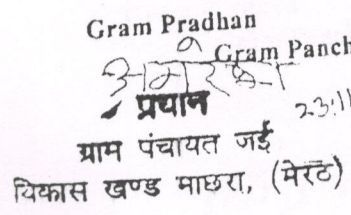 Gram Pradhan
Gram Panch
प्रधान
23.11
ग्राम पंचायत जई
विकास खण्ड माछरा, (मेरठ)